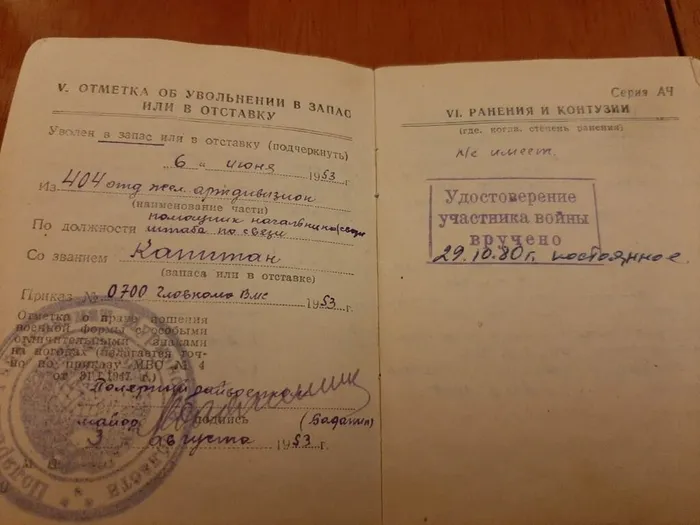 V. ОТМЕТКА ОБ УВОЛЬНЕНИИ В ЗАПАС
ИЛИ В ОТСТАВКУ
Уволен в запас или в отставку (подчеркнуть)
6 " июня 1953 г.
Из 404 отд жел. артдивизион
(наименование части)
По должности помощник начальника
штаба по связи
Со званием Капитан
(запаса или в отставке)
Приказ № 0700 Главкома ВМС 1953 г.
Отметка о праве ношения
военной формы с особыми
отличительными знаками
на погонах (полагается точ-
но по приказу МВС № 4
от 1947 г.)
майор подпись
3 августа 1953
Серия АЧ
VI. РАНЕНИЯ И КОНТУЗИИ
(где, когда, степень ранения)
не имеет.
Удостоверение
участника войны
вручено
29.10.80г. постоянное.